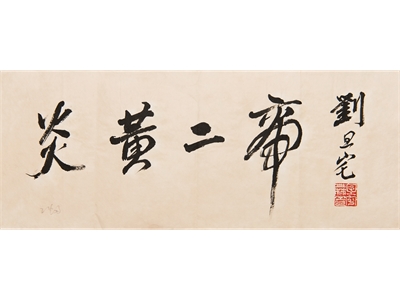 炎黃二帝
劉旦宅